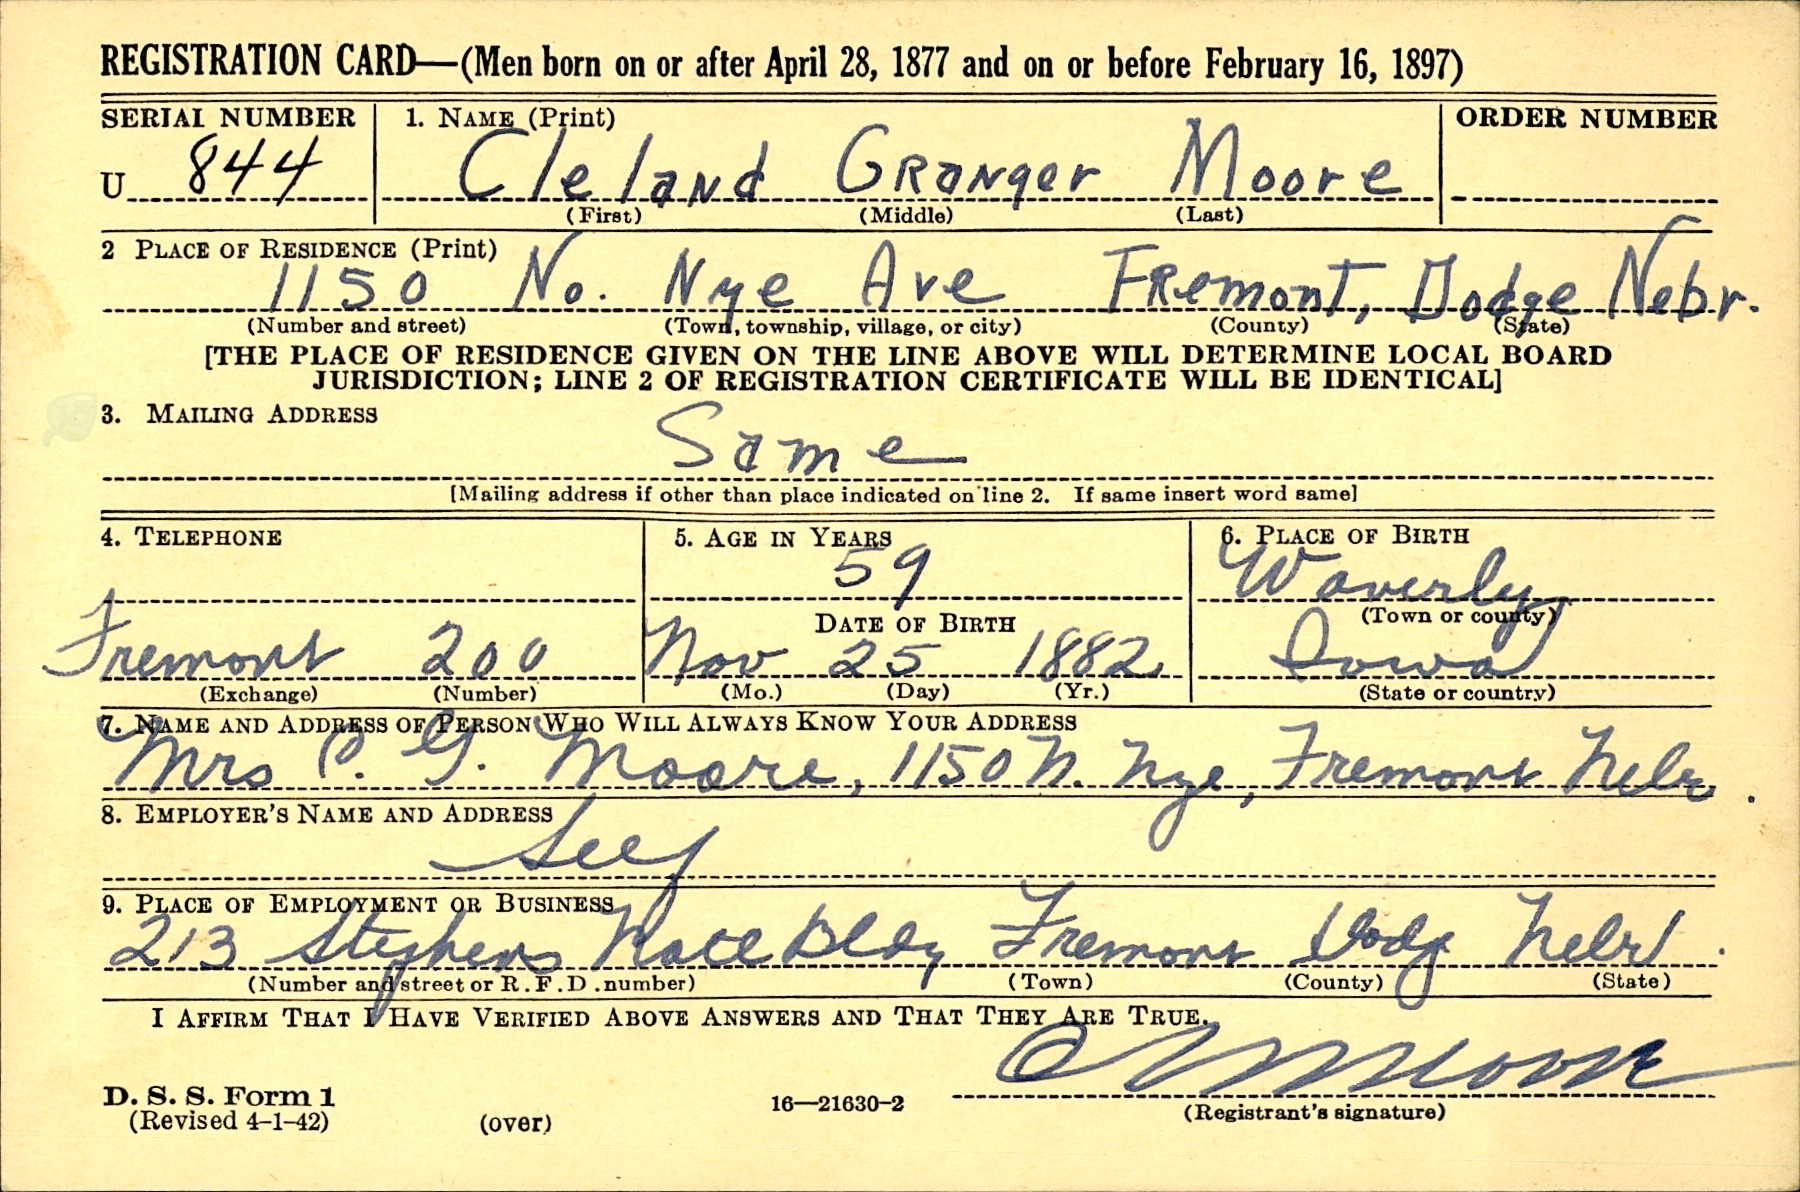 REGISTRATION CARD—(Men born on or after April 28, 1877 and on or before February 16, 1897)
SERIAL NUMBER 1. NAME (Print) ORDER NUMBER
U 844 Cleland Granger Moore
(First) (Middle) (Last)
2 PLACE OF RESIDENCE (Print)
1150 No. Nye Ave Fremont, Dodge Nebr.
(Number and street) (Town, township, village, or city) (County) (State)
[THE PLACE OF RESIDENCE GIVEN ON THE LINE ABOVE WILL DETERMINE LOCAL BOARD
JURISDICTION; LINE 2 OF REGISTRATION CERTIFICATE WILL BE IDENTICAL]
3. MAILING ADDRESS
Same
[Mailing address if other than place indicated on line 2. If same insert word same]
4. TELEPHONE 5. AGE IN YEARS 6. PLACE OF BIRTH
59 Waverly
DATE OF BIRTH (Town or county)
Fremont 200 Nov 25 1882 Iowa
(Exchange) (Number) (Mo.) (Day) (Yr.) (State or country)
7. NAME AND ADDRESS OF PERSON WHO WILL ALWAYS KNOW YOUR ADDRESS
Mrs C. G. Moore, 1150 N. Nye, Fremont Nebr.
8. EMPLOYER'S NAME AND ADDRESS
Self
9. PLACE OF EMPLOYMENT OR BUSINESS
213 Stephens Natl Bldg Fremont Dodg Nebr.
(Number and street or R.F.D. number) (Town) (County) (State)
I AFFIRM THAT I HAVE VERIFIED ABOVE ANSWERS AND THAT THEY ARE TRUE.
Moore
D. S. S. Form 1
(Revised 4-1-42) (over) 16—21630-2 (Registrant's signature)